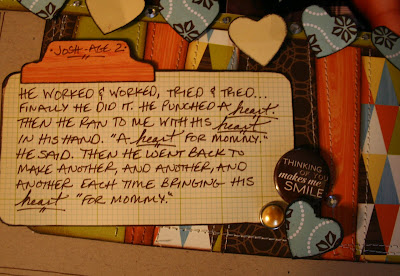 JOSH-AGE 2
HE WORKED & WORKED, TRIED & TRIED...
FINALLY HE DID IT. HE PUNCHED A heart.
THEN HE RAN TO ME WITH HIS heart
IN HIS HAND. "A heart FOR MOMMY."
HE SAID. THEN HE WENT BACK TO
MAKE ANOTHER, AND ANOTHER, AND
ANOTHER EACH TIME BRINGING HIS
heart "FOR MOMMY."
THINKING
OF YOU
makes me
SMILE